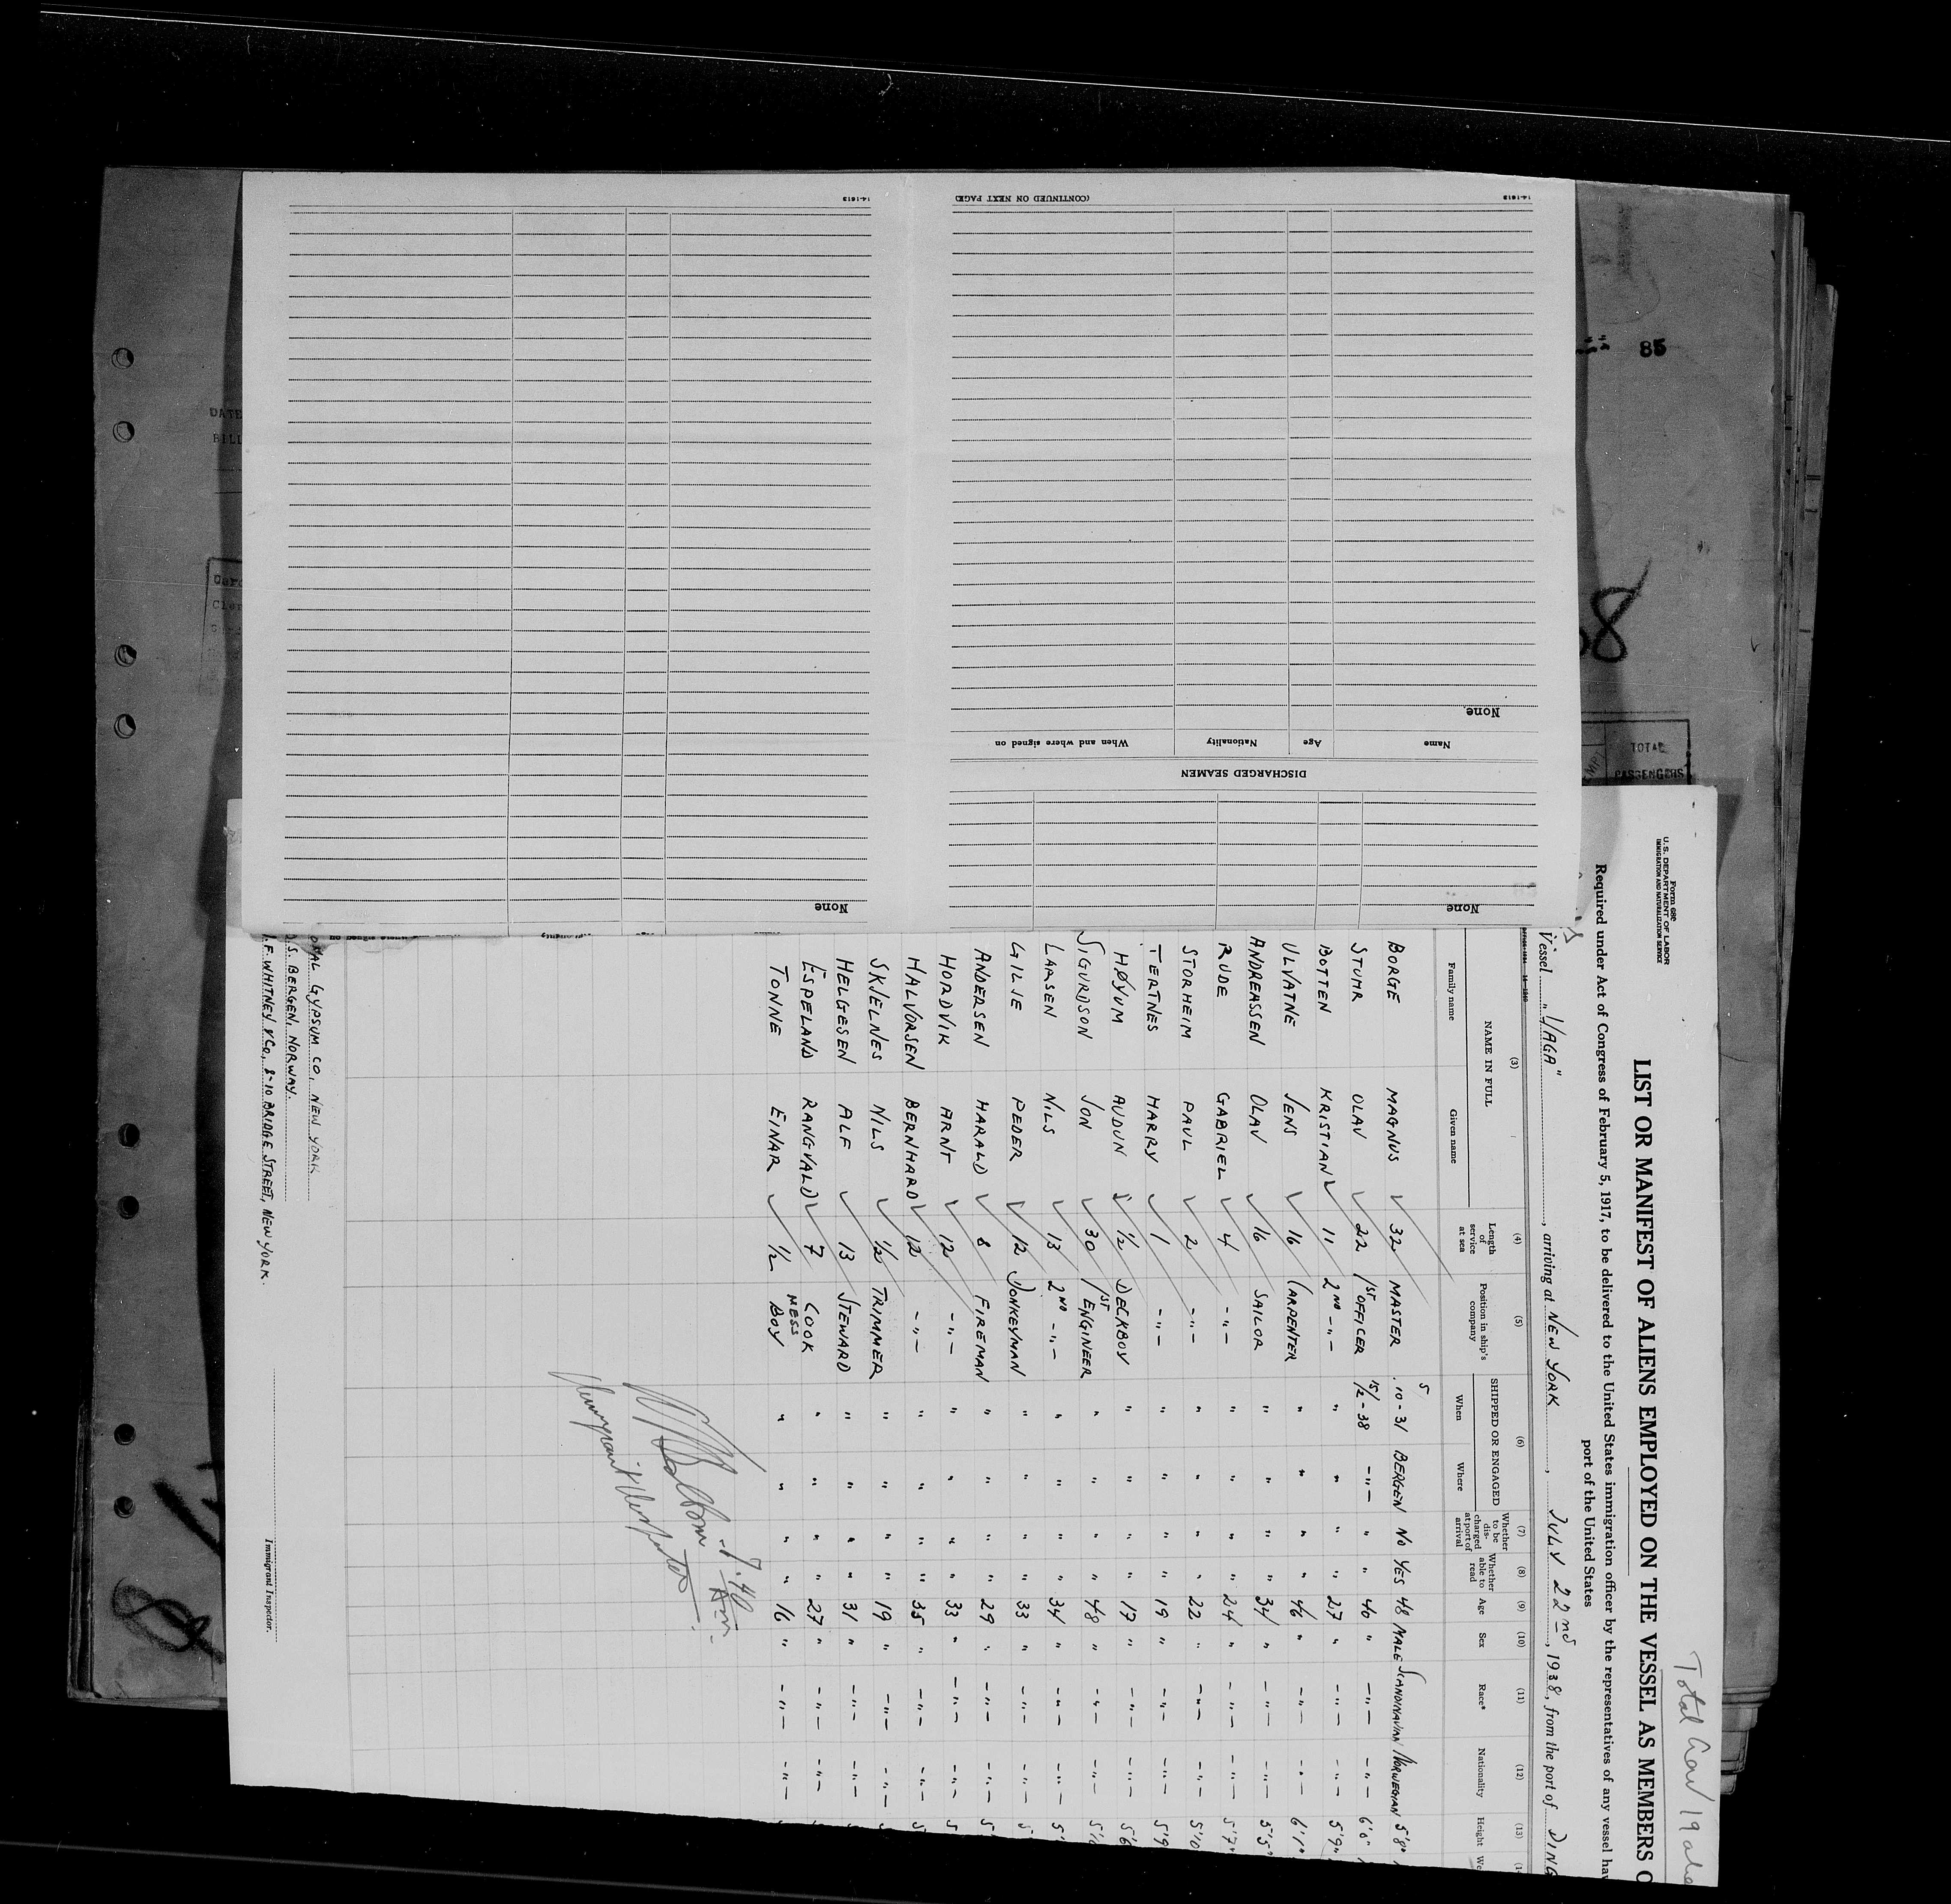 Total Crew 19
Form 680
U.S. DEPARTMENT OF LABOR
IMMIGRATION AND NATURALIZATION SERVICE
LIST OR MANIFEST OF ALIENS EMPLOYED ON THE VESSEL AS MEMBERS O
Required under Act of Congress of February 5, 1917, to be delivered to the United States immigration officer by the representatives of any vessel hav
port of the United States
Vessel "VAGA", arriving at NEW YORK, JULY 22nd, 1938, from the port of DING
(3) (4) (5) (6) (7) (8) (9) (10) (11) (12) (13)
NAME IN FULL Length of service at sea Position in ship's company SHIPPED OR ENGAGED Whether to be discharged at port of arrival Whether able to read Age Sex Race* Nationality Height We
Family name Given name When Where
BORGE MAGNUS 32 MASTER 5/10-31 BERGEN NO YES 48 MALE SCANDINAVIAN NORWEGIAN 5'8"
STUHR OLAV 22 1ST OFFICER 15/2-38 -"- " " 40 " -"- -"- 6'0"
BOTTEN KRISTIAN 11 2ND -"- " " " " 27 " -"- -"- 5'9"
ULVATNE JENS 16 CARPENTER " " " " 46 " -"- -"- 6'1"
ANDREASSEN OLAV 16 SAILOR " " " " 34 " -"- -"- 5'5"
RUDE GABRIEL 4 -"- " " " " 24 " -"- -"- 5'7"
STORHEIM PAUL 2 -"- " " " " 22 " -"- -"- 5'10
TERTNES HARRY 1 -"- " " " " 19 " -"- -"- 5'9
HØYUM AUDUN 1/2 DECKBOY " " " " 17 " -"- -"- 5'6
SIGURDSON JON 30 1ST ENGINEER " " " " 48 " -"- -"- 5'
LARSEN NILS 13 2ND -"- " " " " 34 " -"- -"- 5'
GILJE PEDER 12 DONKEYMAN " " " " 33 " -"- -"- 5
ANDERSEN HARALD 8 FIREMAN " " " " 29 " -"- -"- 5
HORDVIK ARNT 12 -"- " " " " 33 " -"- -"- 5
HALVORSEN BERNHARD 12 -"- " " " " 35 " -"- -"- 5
SKJELNES NILS 1/2 TRIMMER " " " " 19 " -"- -"-
HELGESEN ALF 13 STEWARD " " " " 31 " -"- -"-
ESPELAND RANGVALD 7 COOK " " " " 27 " -"- -"-
TONNE EINAR 1/2 MESS BOY " " " " 16 " -"- -"-
Immigrant Inspector
GYPSUM CO, NEW YORK
S. BERGEN, NORWAY.
F. WHITNEY & CO., 8-10 BRIDGE STREET, NEW YORK.
Immigrant Inspector.
None
DISCHARGED SEAMEN
Name Age Nationality When and where signed on
None.
(CONTINUED ON NEXT PAGE)
14-1613
None
14-1613
85
68
TOTAL
PASSENGERS
DATE
BILL